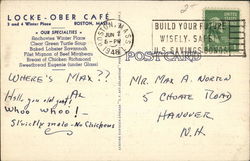 LOCKE-OBER CAFÉ
3 and 4 Winter Place BOSTON, MASS.
OUR SPECIALTIES
Baked Lobster Savannah
Filet Mignon of Beef Mirabeau
Breast of Chicken Richmond
Sweetbread Eugenie (under Glass)
BOSTON, MASS.
JUN 2
PM
1948
BUILD YOUR FUTURE
WISELY - SAFELY
U.S. SAVINGS BONDS
POSTCARD
WHERE'S MAX??
Al
Holy you old goat!
Whoo Whoo! -
Strictly Stolo - No Chickens
Mr. Max A. Norton
5 Choate Road
Hanover
N.H